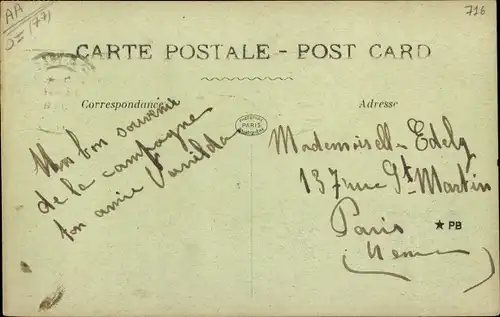 AA
(77)
716
CARTE POSTALE - POST CARD
Correspondance
Adresse
Un bon souvenir
de la campagne
ton amie
PARIS
Mademoiselle Edely
137 rue St Martin
Paris
★ PB